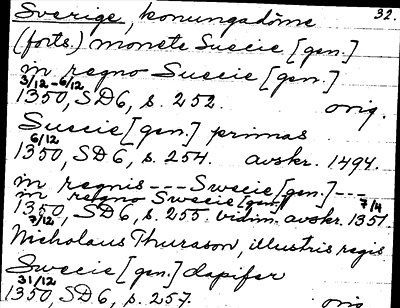 Sverige, konungadöme 32.
(forts.) monete Suecie [gen.]
in regno Suecie [gen.]
3/12-6/12
1350, SD6, s. 252. orig.
Suecie [gen.] primas
6/12
1350, SD6, s. 254. avskr. 1494.
in regnis --- Swecie [gen.] ---
in regno Swecie [gen.] 7/4
1350, SD6, s. 255 vidim. avskr. 1351.
7/12
Nicholaus Thurason, illustris regis
Swecie [gen.] dapifer
31/12
1350, SD6, s. 257. orig